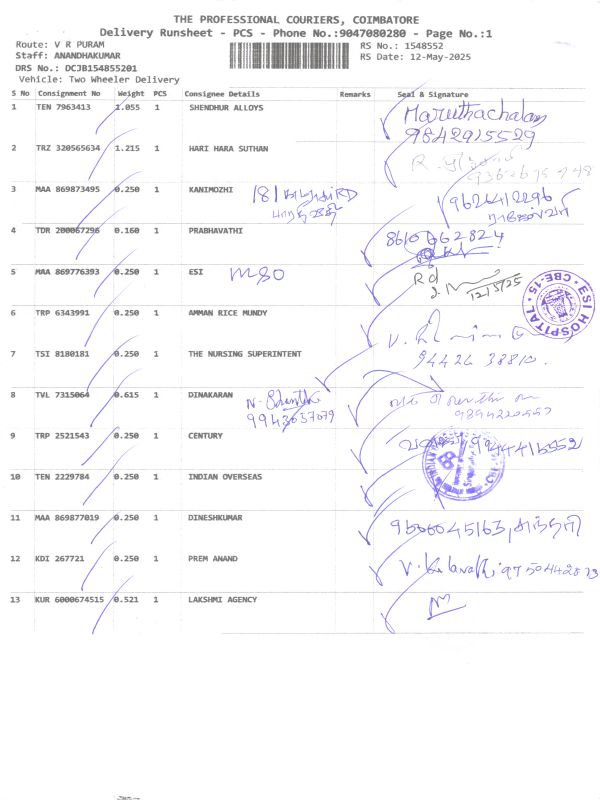 THE PROFESSIONAL COURIERS, COIMBATORE
Delivery Runsheet - PCS - Phone No.:9047080280 - Page No.:1
Route: V R PURAM
RS No.: 1548552
Staff: ANANDHAKUMAR
RS Date: 12-May-2025
DRS No.: DCJB154855201
Vehicle: Two Wheeler Delivery
S No Consignment No Weight PCS Consignee Details Remarks Seal & Signature
1 TEN 7963413 1.055 1 SHENDHUR ALLOYS Maruthachalam
9842915529
2 TRZ 320565634 1.215 1 HARI HARA SUTHAN R.
3 MAA 869873495 0.250 1 KANIMOZHI 181 RD 9626412296
4 TDR 200067296 0.160 1 PRABHAVATHI 8610662824
5 MAA 869776393 0.250 1 ESI MSO Rd
12/5/25
ESI HOSPITAL CBE-15
6 TRP 6343991 0.250 1 AMMAN RICE MUNDY
7 TSI 8180181 0.250 1 THE NURSING SUPERINTENT 94426 38810.
8 TVL 7315064 0.615 1 DINAKARAN N. Shanthi
9943037079
9894220557
9 TRP 2521543 0.250 1 CENTURY 9944416552
10 TEN 2229784 0.250 1 INDIAN OVERSEAS
11 MAA 869877019 0.250 1 DINESHKUMAR 9566045163,
12 KDI 267721 0.250 1 PREM ANAND V. 9750442873
13 KUR 6000674515 0.521 1 LAKSHMI AGENCY